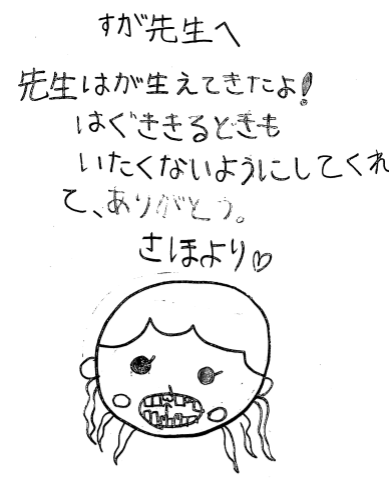 すが先生へ
先生はが生えてきたよ!
はぐききるときも
いたくないようにしてくれ
て、ありがとう。
さほより♡